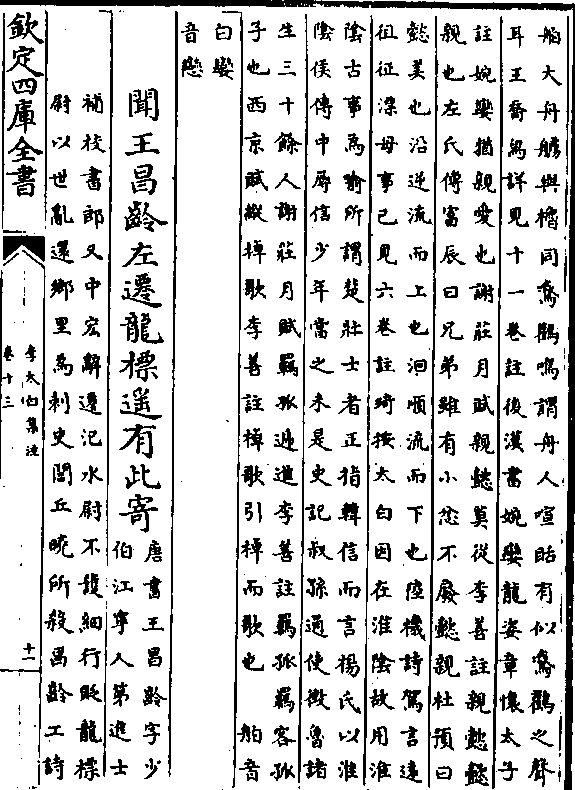 舶大舟艣與櫓同鶬鸛鳴謂舟人喧聒有似鶬鸛之聲
耳王喬舄詳見十一卷註後漢書婉孌龍姿章懷太子
註婉孌猶親愛也謝莊月賦親懿莫從李善註親懿懿
親也左氏傳富辰曰兄弟雖有小忿不廢懿親杜預曰
懿美也沿逆流而上也洄順流而下也陸機詩駕言遠
徂征漂母事已見六卷註琦按太白因在淮陰故用淮
陰古事為喻所謂楚壯士者正指韓信而言楊氏以淮
陰侯傳中辱信少年當之未是史記叔孫通使徵魯諸
生三十餘人謝莊月賦羈孤遞進李善註羈孤羈客孤
子也西京賦縱棹歌李善註棹歌引棹而歌也 舶音
白孌
音戀
聞王昌齡左遷龍標遥有此寄
唐書王昌齡字少
伯江寧人第進士
補校書郎又中宏辭遷汜水尉不護細行貶龍標
尉以世亂還鄉里為刺史閭丘曉所殺昌齡工詩
欽定四庫全書
李太白集注
卷十三
十一